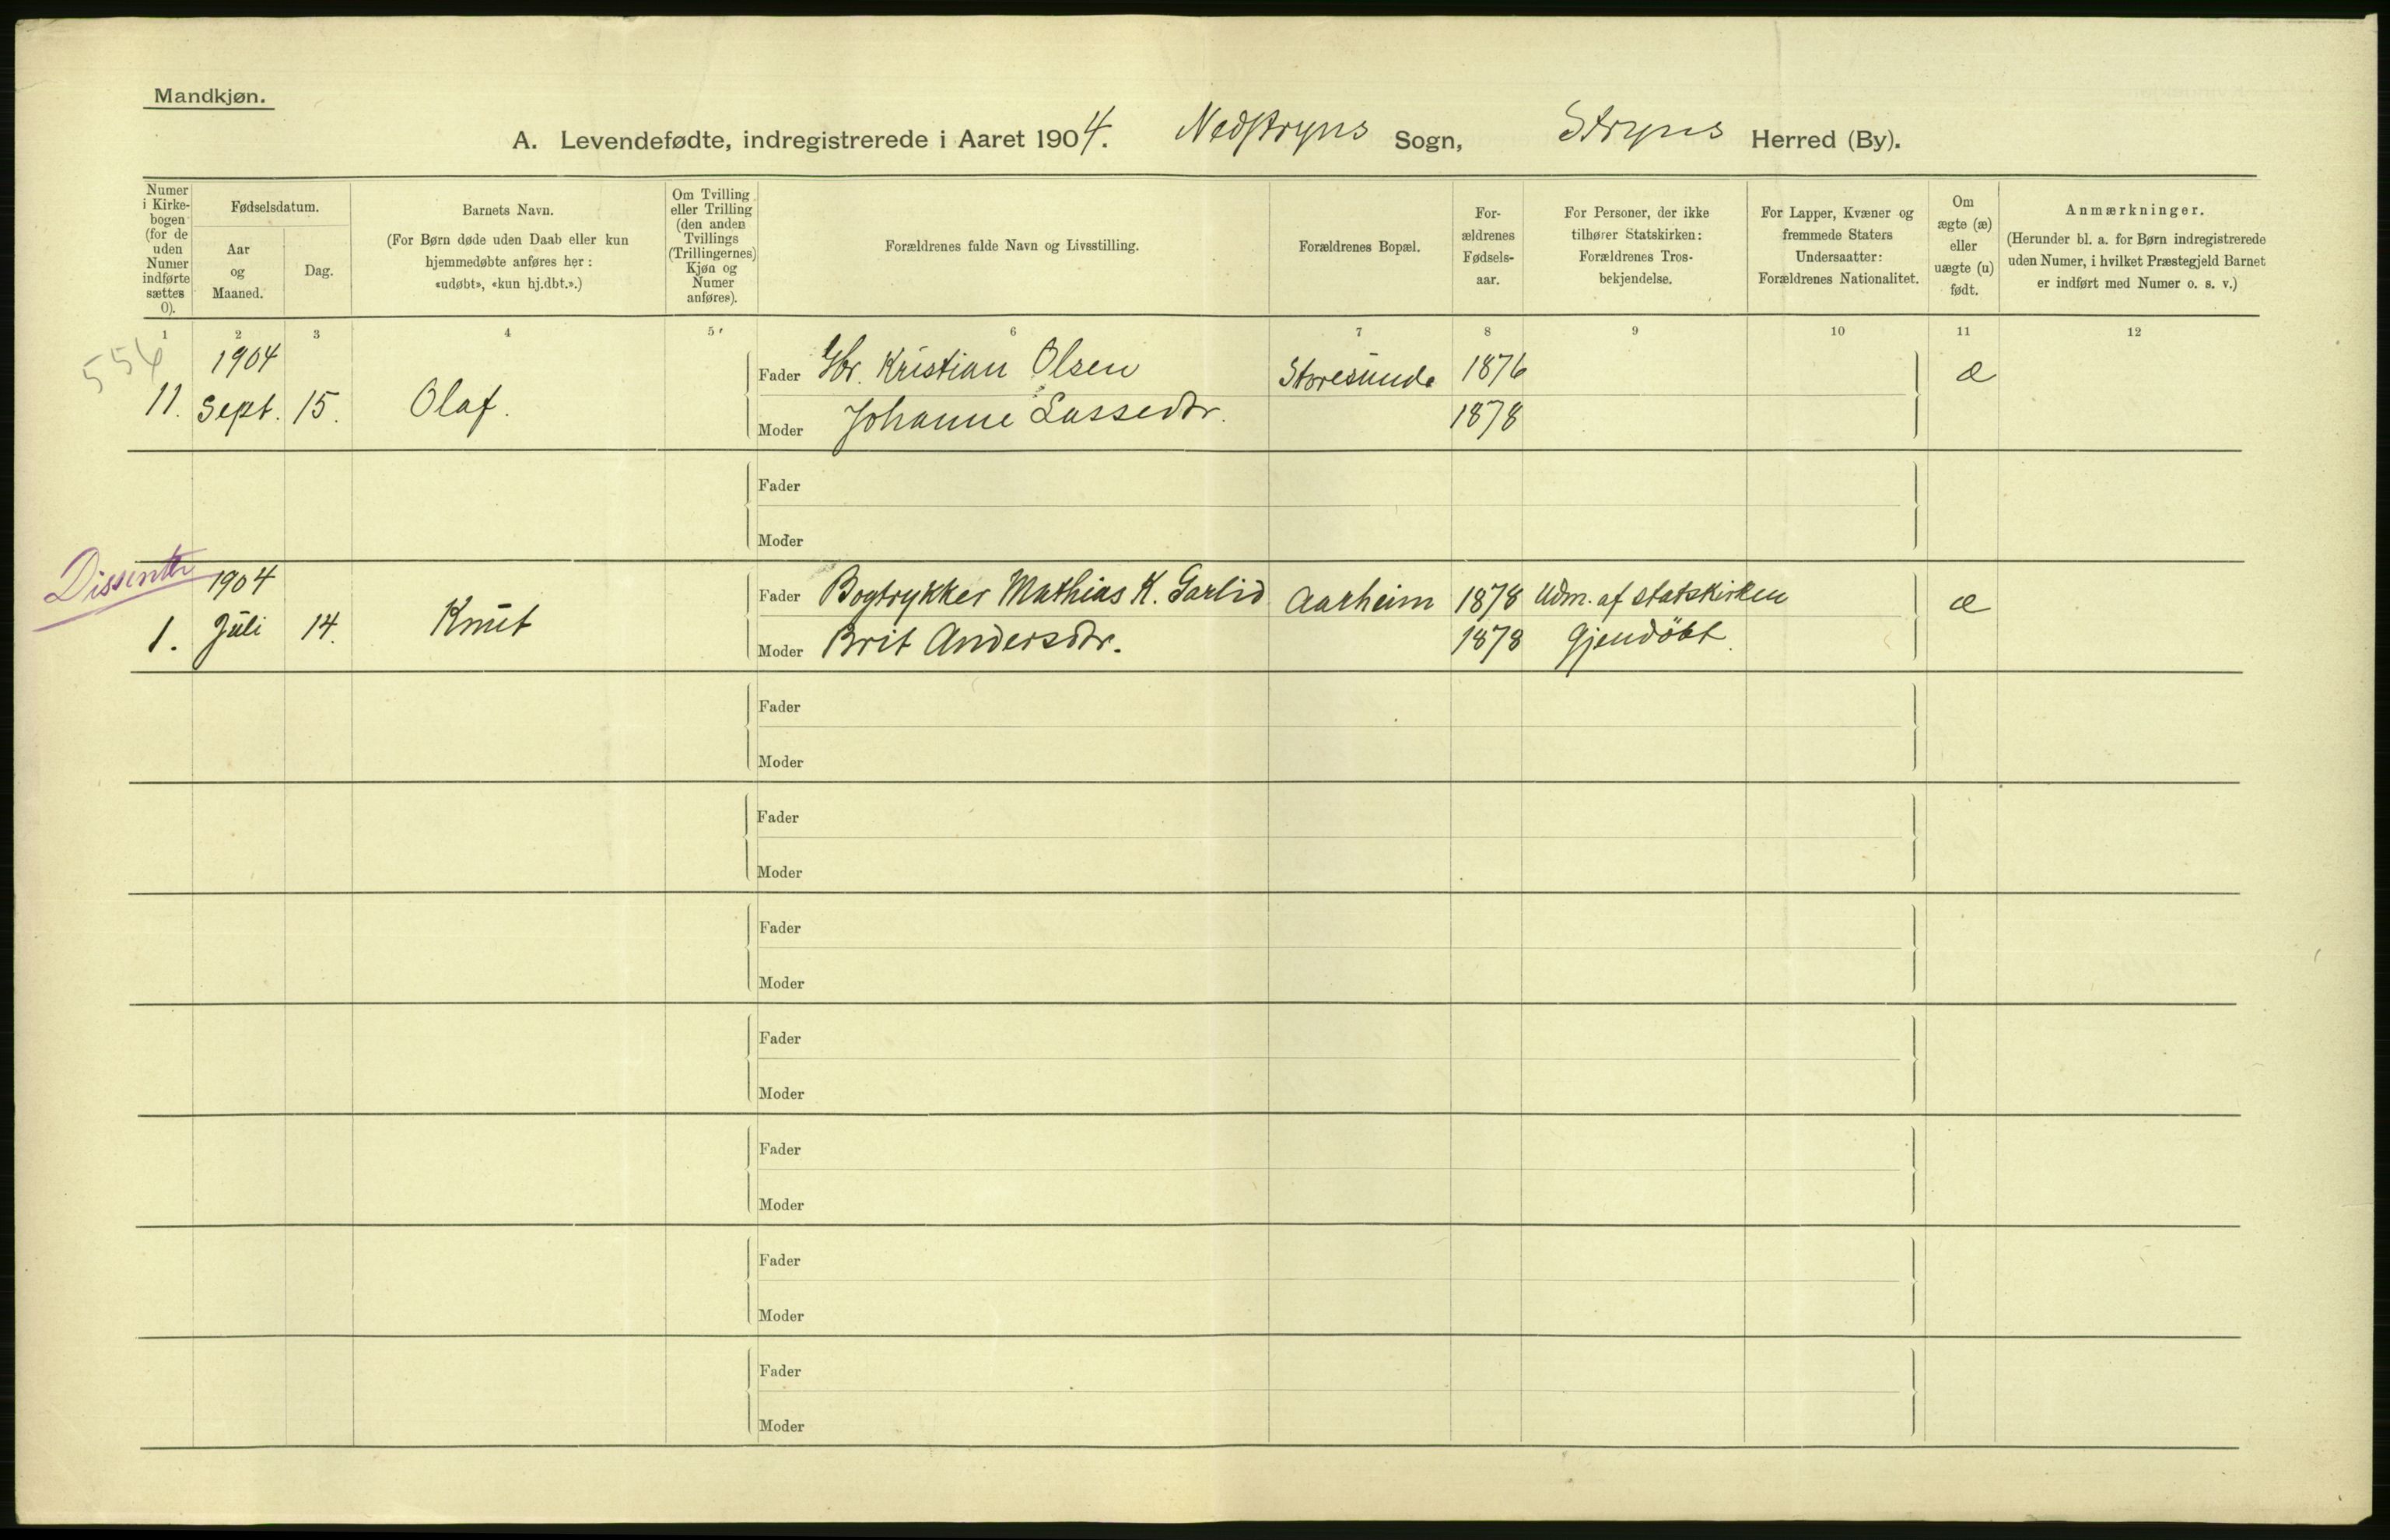 Mandkjøn.
A. Levendefødte, indregistrerede i Aaret 1904. Nedstryns Sogn, Stryns Herred (By).
Numer i Kirke- bogen (for de uden Numer indførte sættes 0).
Fødselsdatum.
Aar og Maaned.
Dag.
Barnets Navn.
(For Børn døde uden Daab eller kun
hjemmedøbte anføres her:
«udøbt», «kun hj.dbt.».)
Om Tvilling eller Trilling (den anden Tvillings (Trillingernes) Kjøn og Numer anføres).
Forældrenes fulde Navn og Livsstilling.
Forældrenes Bopæl.
For- ældrenes Fødsels- aar.
For Personer, der ikke tilhører Statskirken: Forældrenes Tros- bekjendelse.
For Lapper, Kvæner og fremmede Staters Undersaatter: Forældrenes Nationalitet.
Om ægte (æ) eller uægte (u) født.
Anmærkninger.
(Herunder bl. a. for Børn indregistrerede
uden Numer, i hvilket Præstegjeld Barnet
er indført med Numer o. s. v.)
1 2 3 4 5 6 7 8 9 10 11 12
554
1904
Fader Gbr. Kristian Olsen Storesunde 1876 æ
11. Sept. 15. Olaf.
Moder Johanne Lassedtr. 1878
Fader
Moder
Dissenter
1904
Fader Bogtrykker Mathias K. Garlid Aarheim 1878 Udm. af statskirken æ
1. Juli 14. Knut
Moder Brit Andersdtr. 1878 Gjendöbt.
Fader
Moder
Fader
Moder
Fader
Moder
Fader
Moder
Fader
Moder
Fader
Moder
Fader
Moder